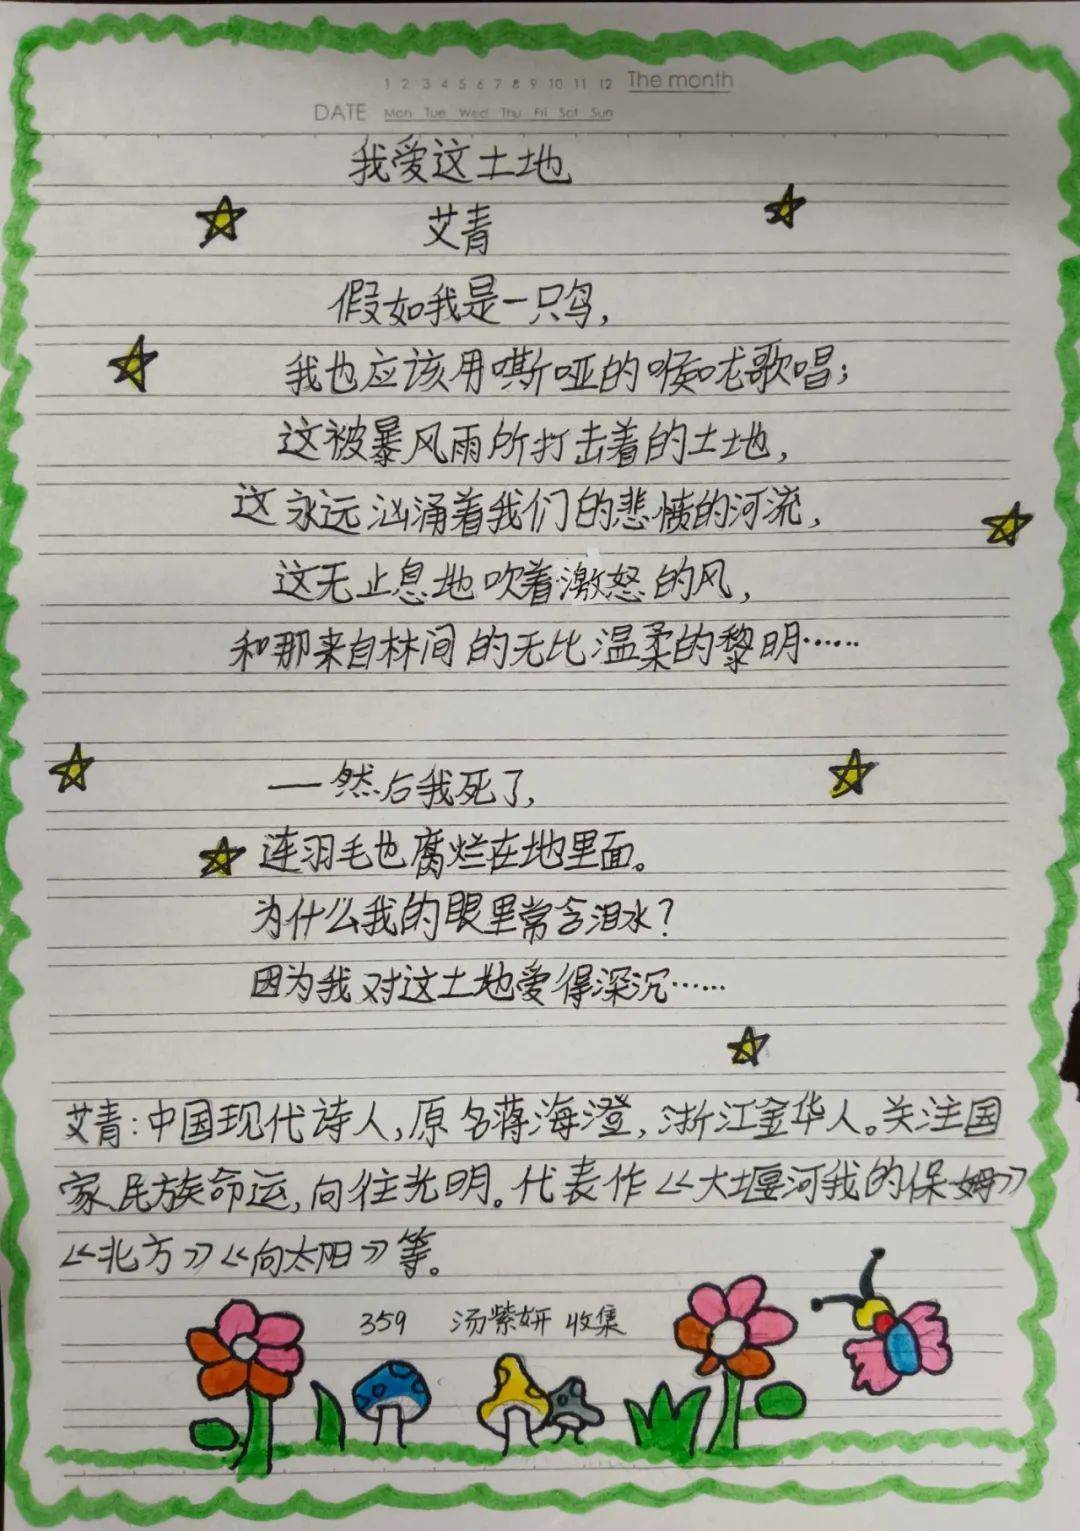 1 2 3 4 5 6 7 8 9 10 11 12 The month
DATE Mon Tue Wed Thu Fri Sat Sun
我爱这土地
艾青
假如我是一只鸟，
我也应该用嘶哑的喉咙歌唱；
这被暴风雨所打击着的土地，
这永远汹涌着我们的悲愤的河流，
这无止息地吹着激怒的风，
和那来自林间的无比温柔的黎明……
—然后我死了，
连羽毛也腐烂在地里面。
为什么我的眼里常含泪水？
因为我对这土地爱得深沉……
艾青：中国现代诗人，原名蒋海澄，浙江金华人。关注国
家民族命运，向往光明。代表作《大堰河我的保姆》
《北方》《向太阳》等。
359 汤紫妍 收集